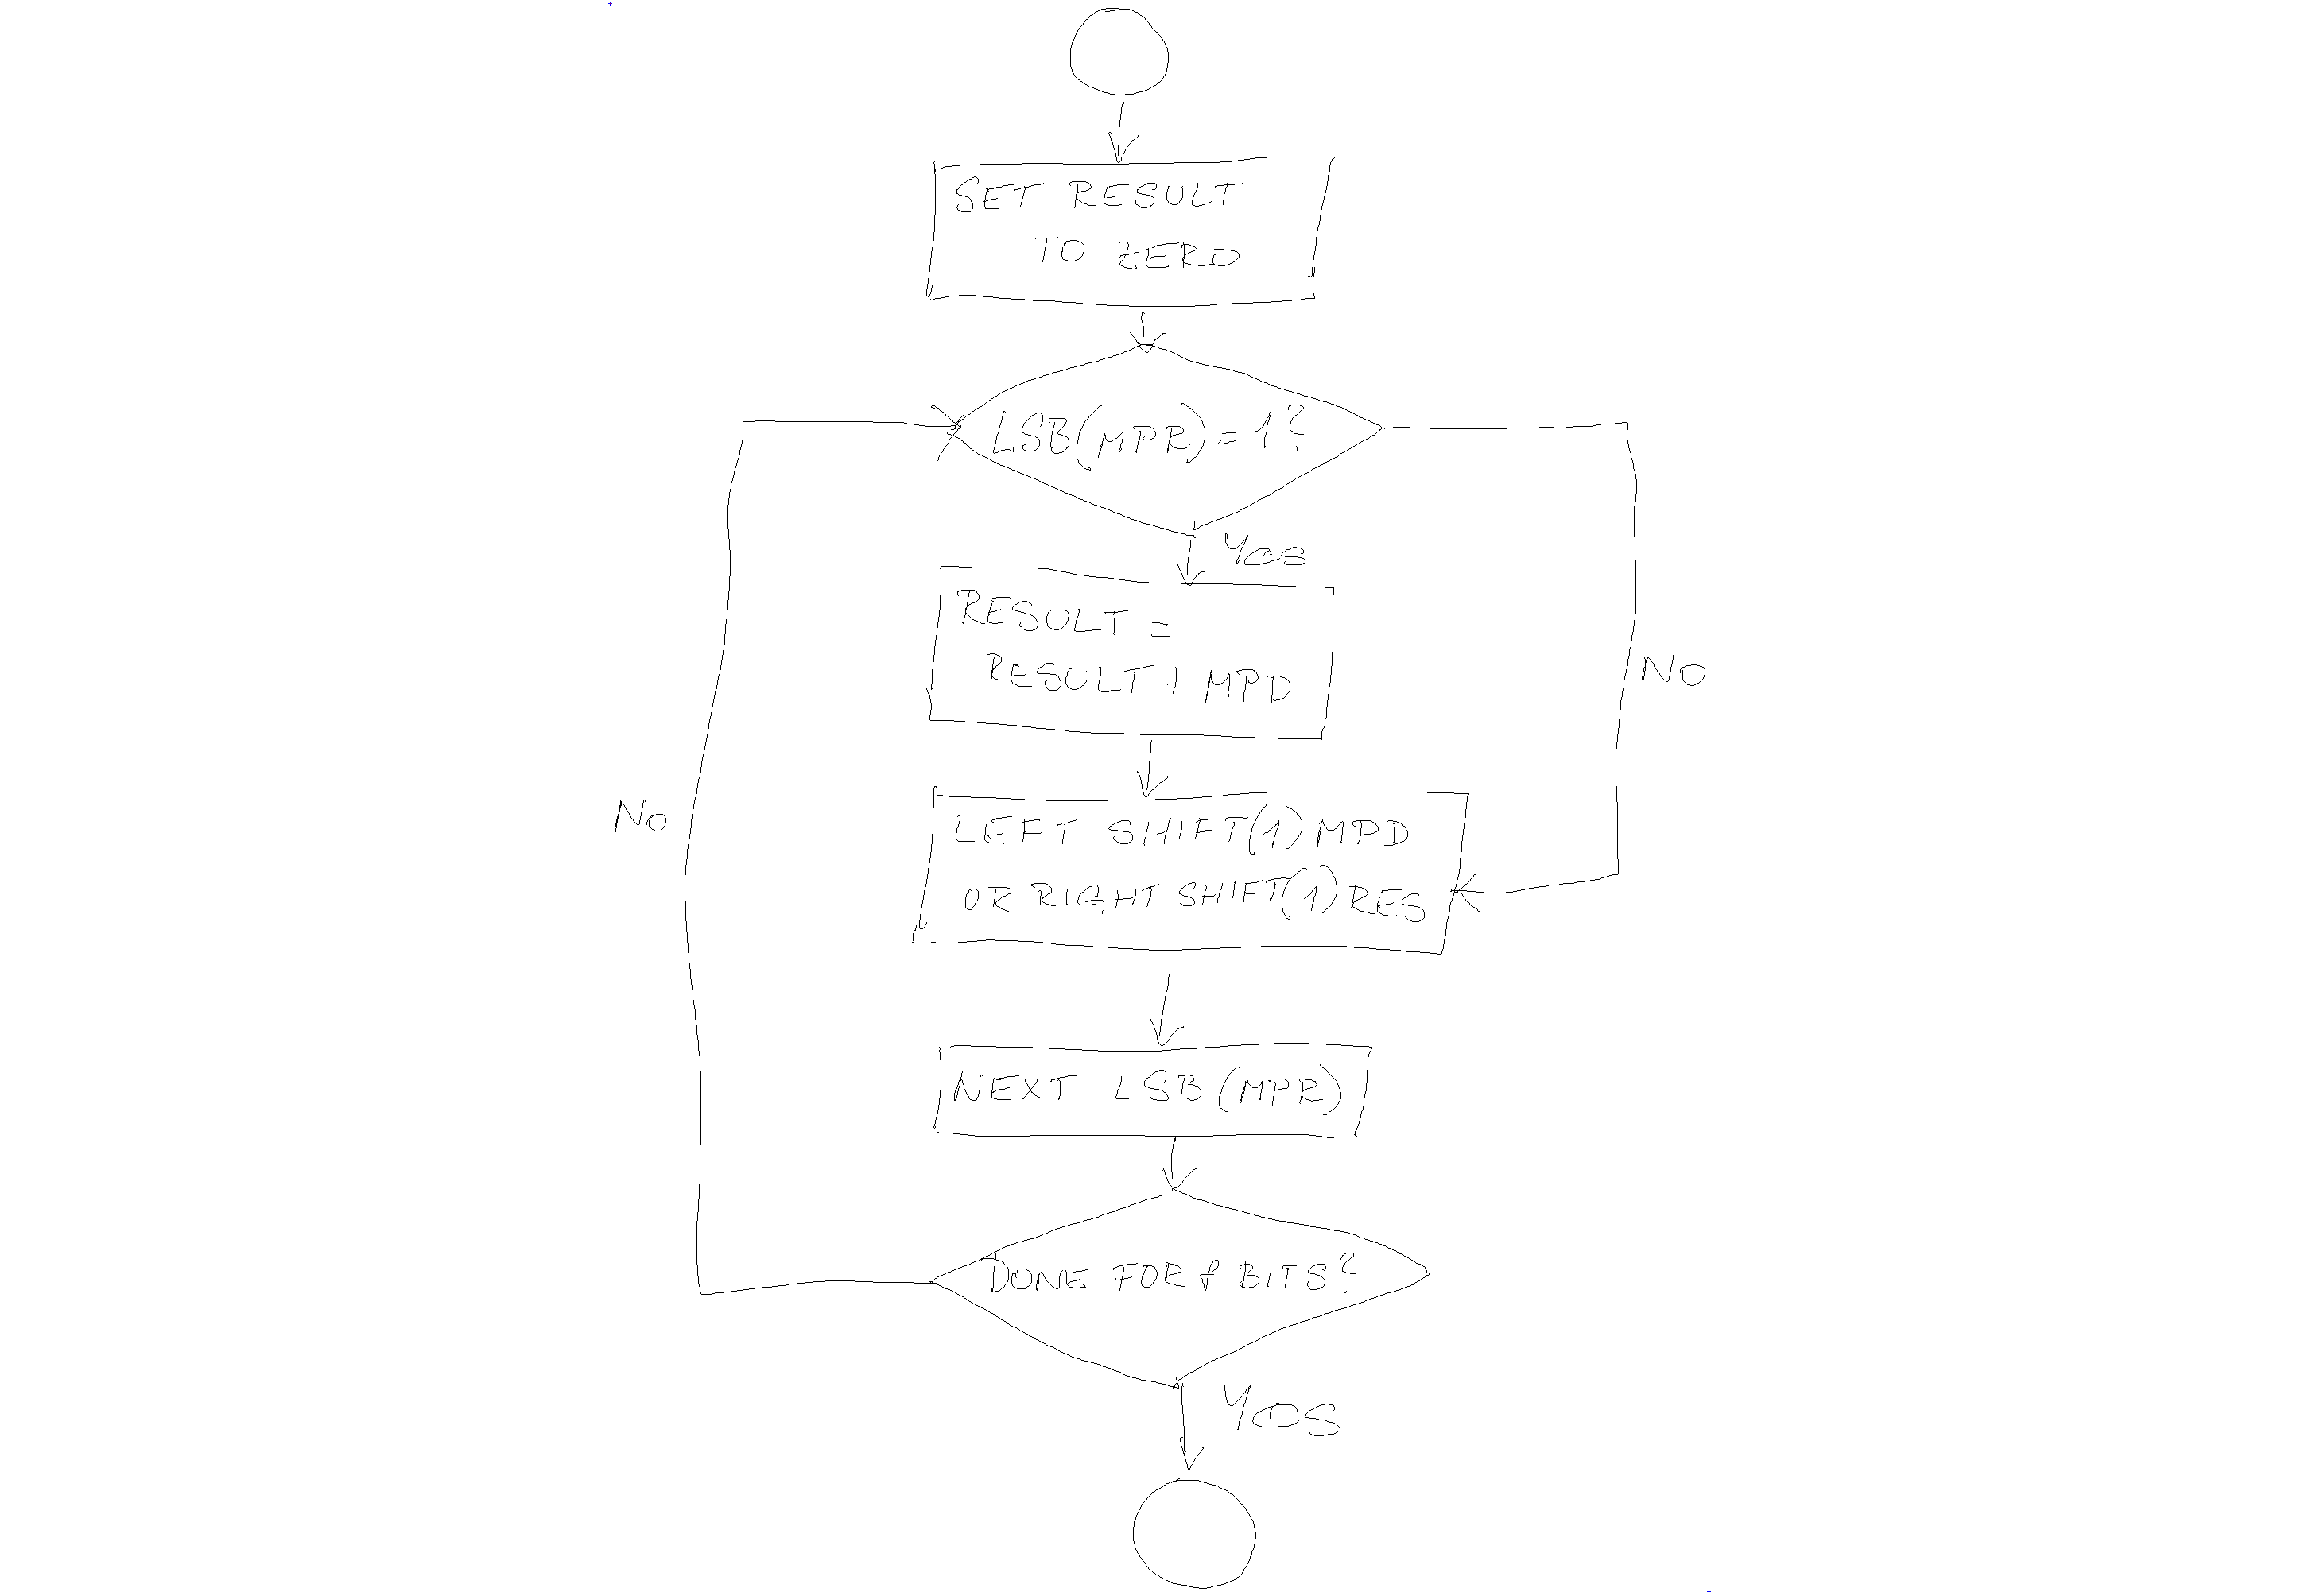 SET RESULT
TO ZERO
LSB(MPR)=1?
YES
RESULT =
RESULT + MPD
NO
LEFT SHIFT(1) MPD
OR RIGHT SHIFT(1) RES
NO
NEXT LSB(MPR)
DONE FOR BITS?
YES